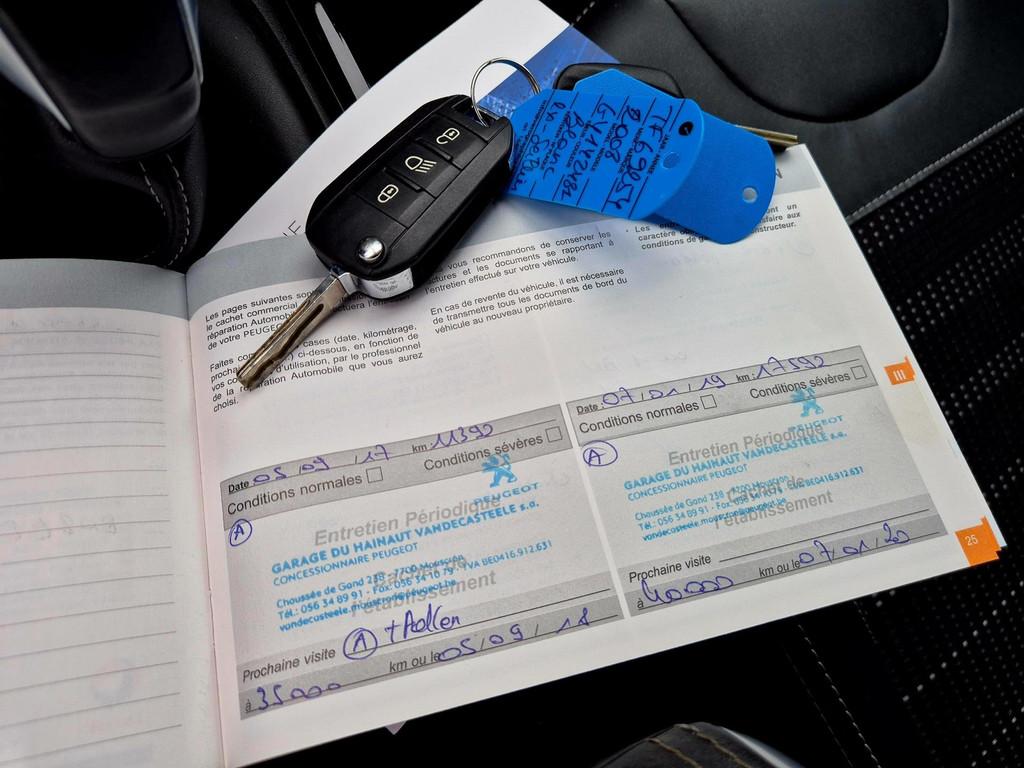 TF69254
2008
Blanc
Les pages suivantes
le cachet commercial
réparation Automobile
de votre PEUGEOT
Faites
cases (date, kilométrage,
ci-dessous, en fonction de
d'utilisation, par le professionnel
Automobile que vous aurez
choisi.
vous recommandons de conserver les
et les documents se rapportant à
l'entretien effectué sur votre véhicule.
En cas de revente du véhicule, il est nécessaire
de transmettre tous les documents de bord du
véhicule au nouveau propriétaire.
ont un
satisfaire aux
caractère
conditions de
constructeur.
III
Date 05/09/17 km: 11392
Conditions normales
Conditions sévères
A
Entretien Périodique
PEUGEOT
GARAGE DU HAINAUT VANDECASTEELE s.a.
CONCESSIONNAIRE PEUGEOT
Chaussée de Gand 238 - 7700 Mouscron
Tél.: 056 34 89 91 - Fax: 056 34 10 79 - TVA BE0416.912.631
vandecasteele.mouscron@peugeot.be
Cachet de
l'établissement
Prochaine visite A +
à 35000 km ou le 05/09/18
Date: 07/01/19 km: 17592
Conditions normales
Conditions sévères
A
Entretien Périodique
PEUGEOT
GARAGE DU HAINAUT VANDECASTEELE s.a.
CONCESSIONNAIRE PEUGEOT
Chaussée de Gand 238 - 7700 Mouscron
Tél.: 056 34 89 91 - Fax: 056 34 10 79 - TVA BE0416.912.631
vandecasteele.mouscron@peugeot.be
Cachet de
l'établissement
Prochaine visite
à 40000 km ou le 07/01/20
25